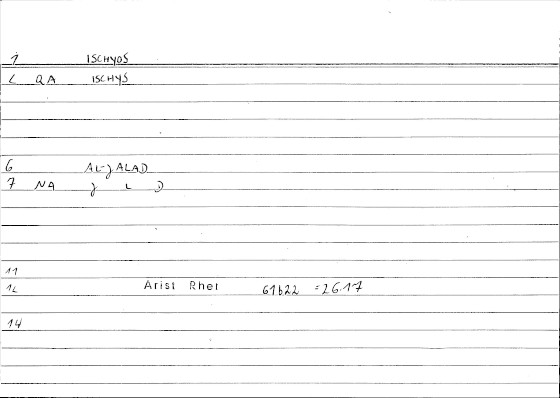 1 ISCHYOS
2 QA ISCHYS
6 AL-JALAD
7 NA J L D
11
12 Arist Rhet 61b22 = 26.17
14